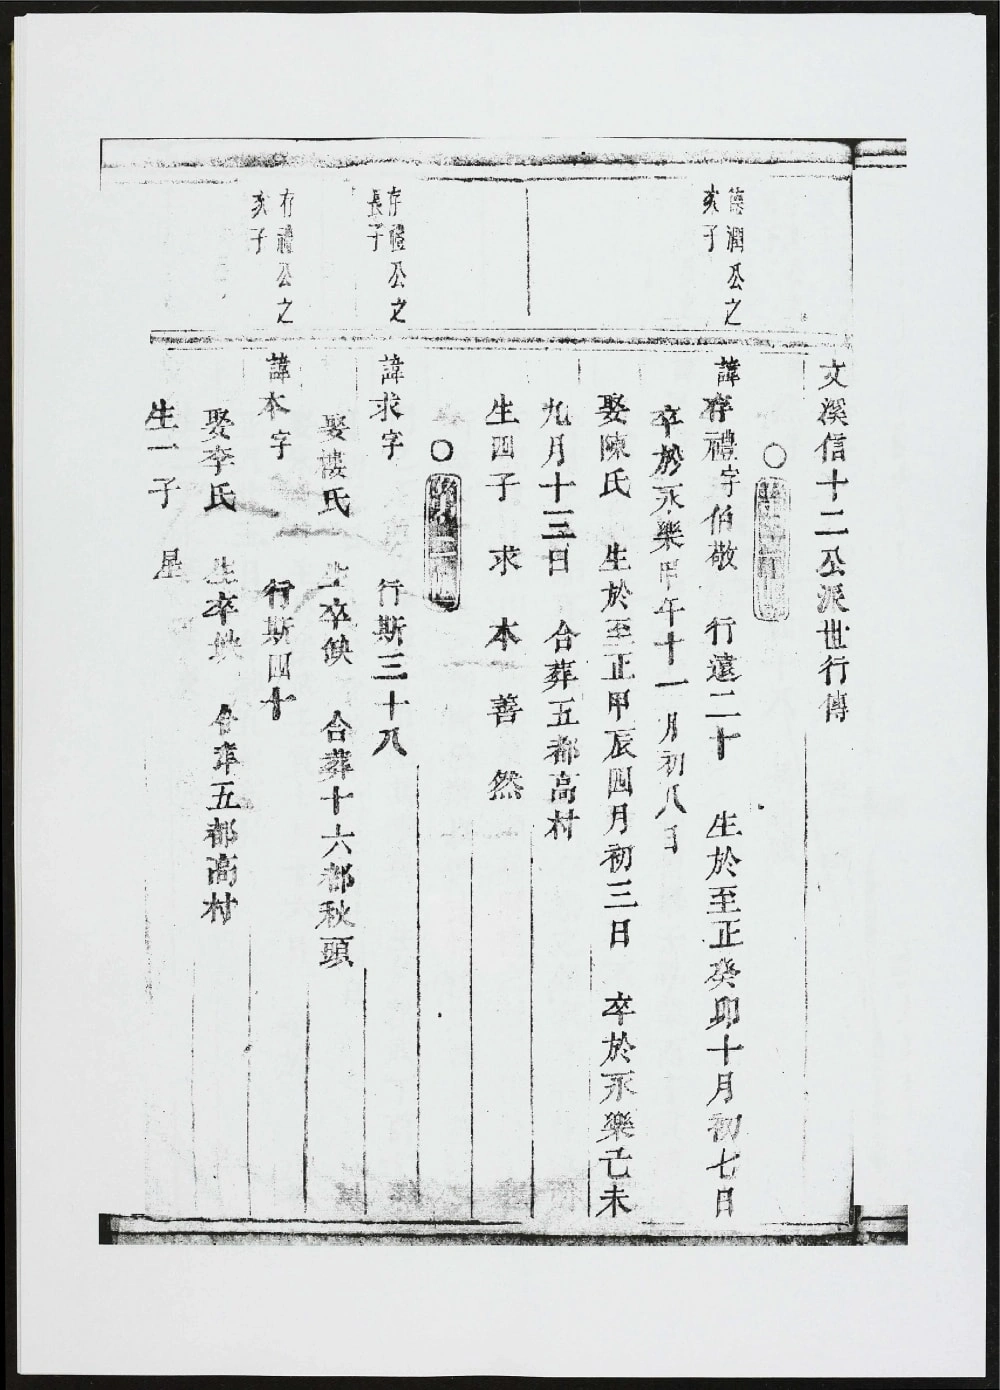 文溪信十二公派世行傳
○
德潤公之
次子
諱存禮字伯敬 行遠二十 生於至正癸卯十月初七日
卒於永樂甲午十一月初八日
娶陳氏 生於至正甲辰四月初三日 卒於永樂己未
九月十三日 合葬五都高村
生四子 求 本 善 然
○
存禮公之
長子
諱求字 行斯三十八
娶樓氏 生卒缺 合葬十六都秋頭
存禮公之
次子
諱本字 行斯四十
娶李氏 生卒缺 合葬五都高村
生一子 星